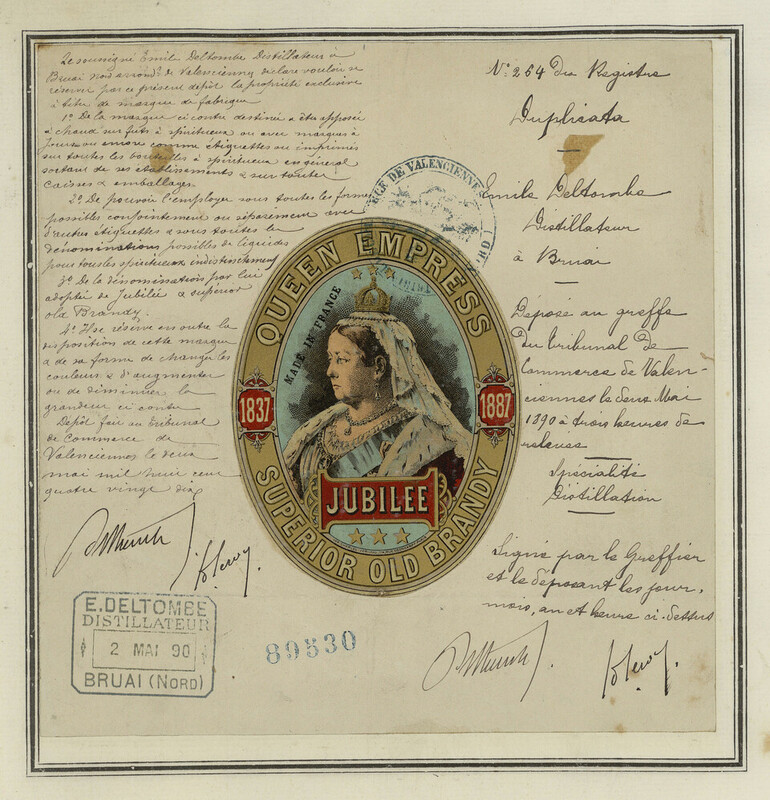 Le soussigné Emile Deltombe Distillateur à
Bruai Nord arrondt de Valenciennes déclare vouloir se
réserver par ce présent dépôt la propriété exclusive
à titre de marque de fabrique
1º De la marque ci contre destinée à être apposée
à chaud sur futs à spiritueux ou avec marques à
jours ou encore comme étiquettes ou imprimés
sur toutes les bouteilles à spiritueux en général
sortant de ses établissements & sur toutes
caisses & emballages.
2º De pouvoir l'employer sous toutes les formes
possibles conjointement ou séparément avec
d'autres étiquettes & sous toutes les
dénominations possibles de liquides
pour tous les spiritueux indistinctement
3º De la dénomination par lui
adoptée de Jubilée & supérior
old Brandy.
4º Il se réserve en outre la
disposition de cette marque
& de sa forme de changer les
couleurs & d'augmenter
ou de diminuer la
grandeur ci contre
Dépôt fait au Tribunal
de Commerce de
Valenciennes le deux
mai mil huit cent
quatre vingt dix
E. DELTOMBE
DISTILLATEUR
2 MAI 90
BRUAI (NORD)
89530
DE VALENCIENNES
QUEEN EMPRESS
MADE IN FRANCE
1837
1887
JUBILEE
SUPERIOR OLD BRANDY
Nº 264 du Registre
Duplicata
Emile Deltombe
Distillateur
à Bruai
Déposé au greffe
du tribunal de
Commerce de Valen-
ciennes le deux Mai
1890 à trois heures de
relevée
Spécialité
Distillation
Signé par le Greffier
et le déposant les jour,
mois, an et heure ci-dessus